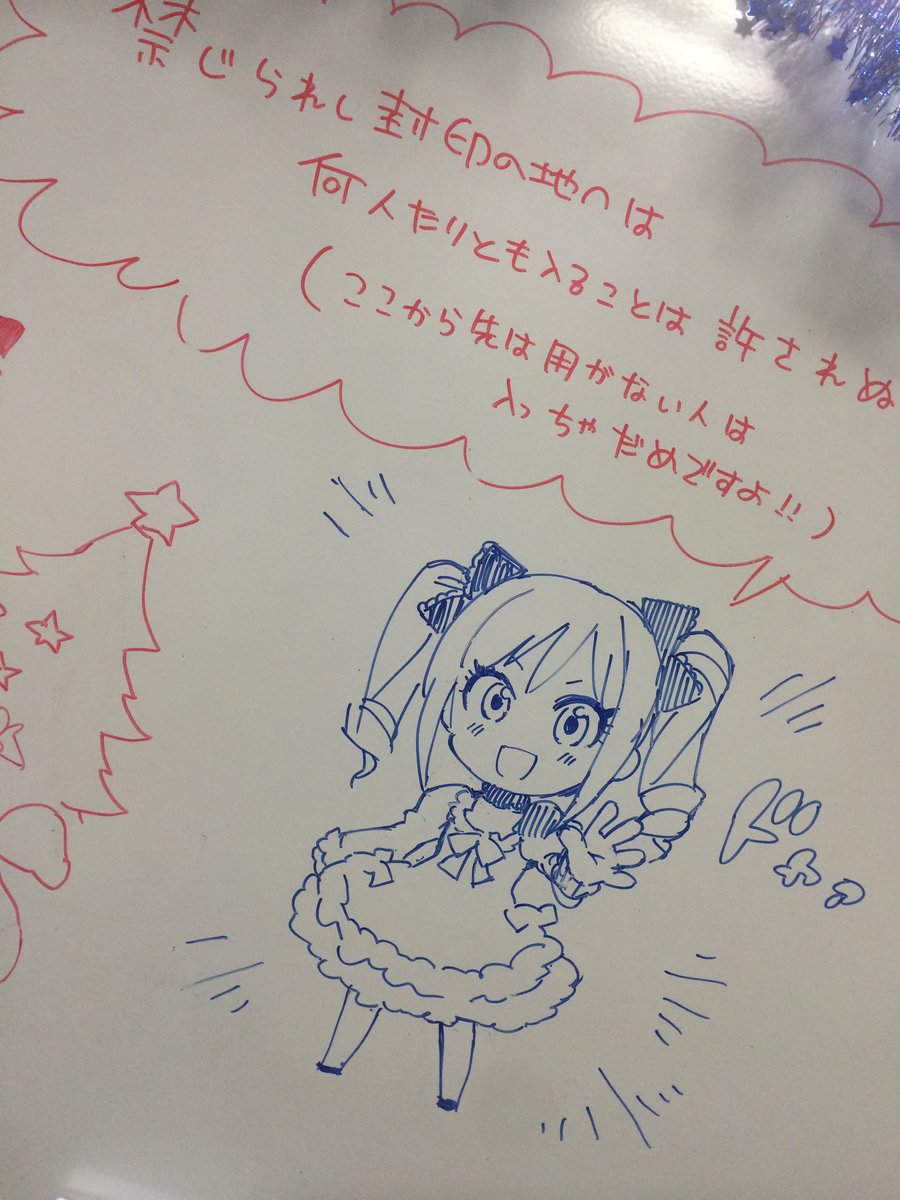 禁じられし封印の地へは
何人たりとも入ることは許されぬ
(ここから先は用がない人は
入っちゃだめですよ!!)
ドヤァ